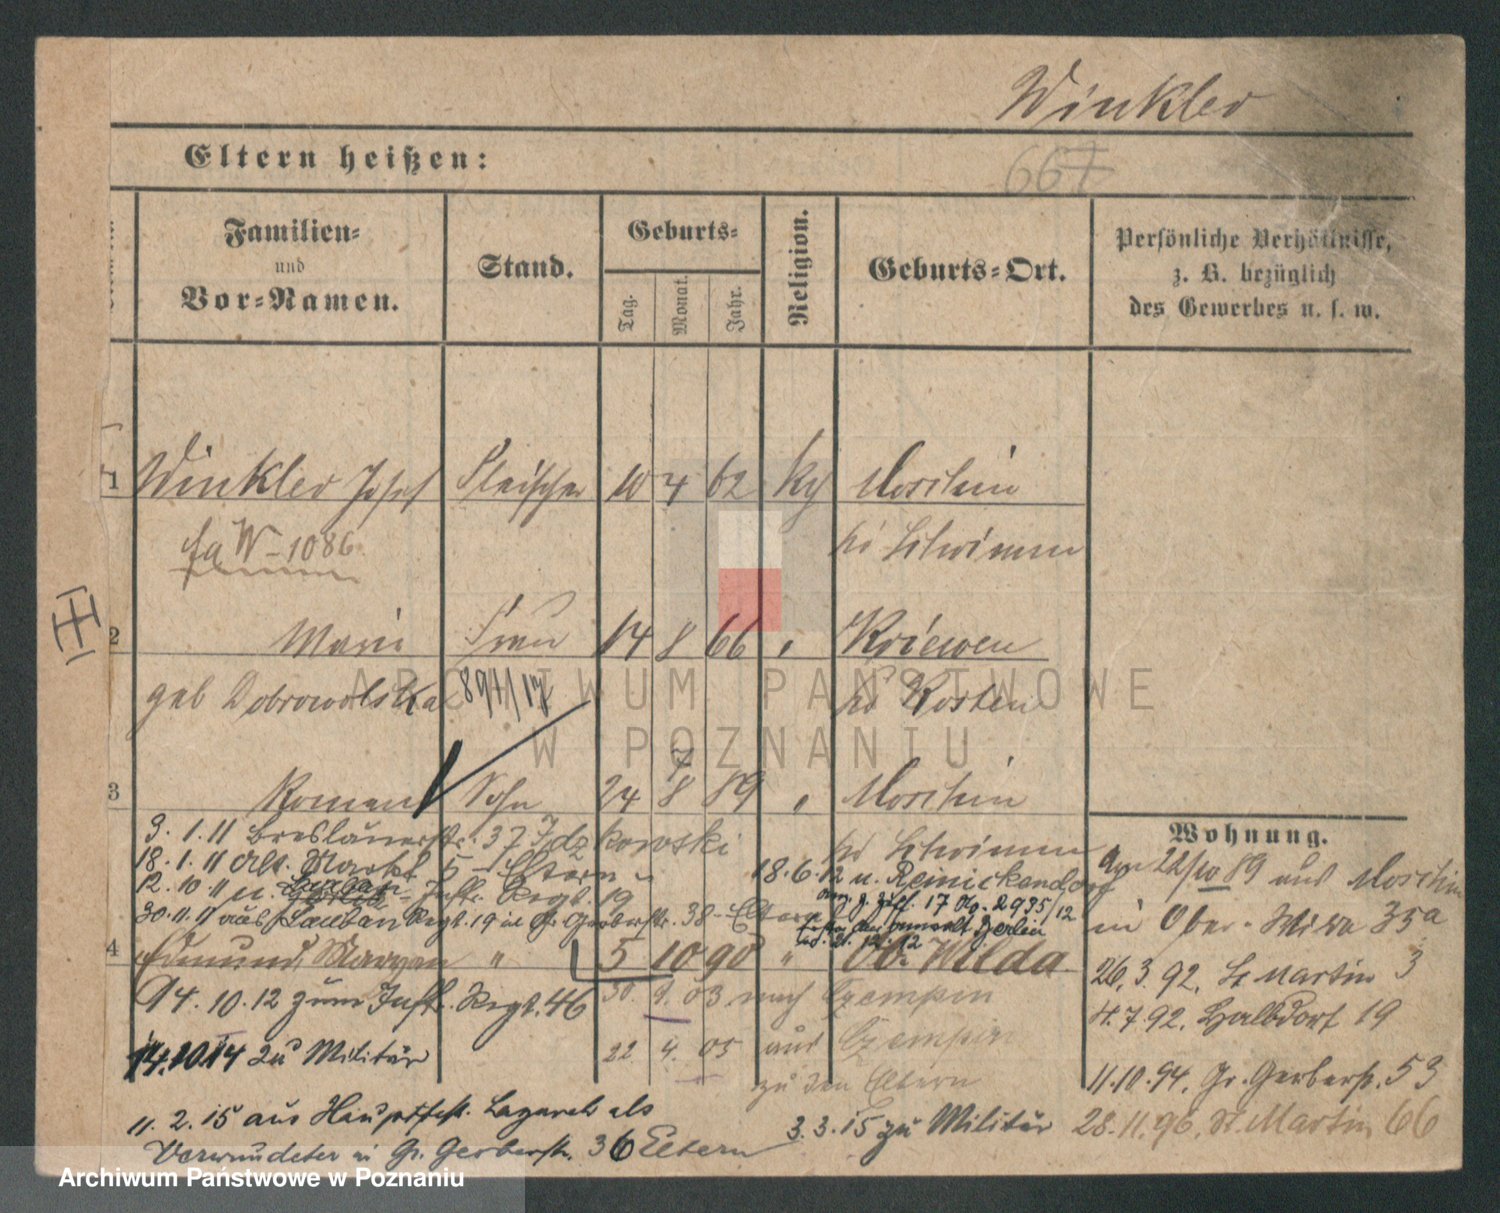 Winkler
Eltern heißen:
667
Familien-
und
Vor-Namen.
Stand.
Geburts-
Tag.
Monat.
Jahr.
Religion.
Geburts-Ort.
Persönliche Verhältnisse,
z. B. bezüglich
des Gewerbes u. s. w.
1 Winkler Josef Fleischer 10 4 62 kth Moschin
fa W - 1086 Schrimm
2 Marie Frau 14 8 66 " Kriewen
geb Dobrowolska 891/17 Kosten
3 Roman Sohn 24 8 89 " Moschin
Schrimm
Wohnung.
9. 1. 11 Breslauerstr. 37 Idzkowski
18. 1. 11 Alt. Markt 5 - Eltern
12. 10 11 n. Lauban - Inftr. Regt. 19
30. 11. 11 aus Lauban Regt. 19 in Gr. Gerberstr. 38 - Eltern
18. 6. 12 n. Reinickendorf
17 2935/12
Berlin
21. 12. 12
22/10 89 aus Moschin
in Ober-Wilda 35a
4 Edmund, Maryan " 5 10 90 " Ob. Wilda
26. 3. 92. St Martin 3
14. 10. 12 zum Inft. Regt. 46
30. 9. 03 nach Czempin
4. 7. 92. Halbdorf 19
14. 10 14 zu Militär
22 4. 05 aus Czempin
zu den Eltern
11. 10. 94. Gr. Gerberstr. 53
11. 2. 15 aus Lazareth als
Verwundeter in Gr. Gerberstr. 36 Eltern
3. 3. 15 zu Militär
28. 11. 96. St. Martin 66
ARCHIWUM PAŃSTWOWE
W POZNANIU
Archiwum Państwowe w Poznaniu